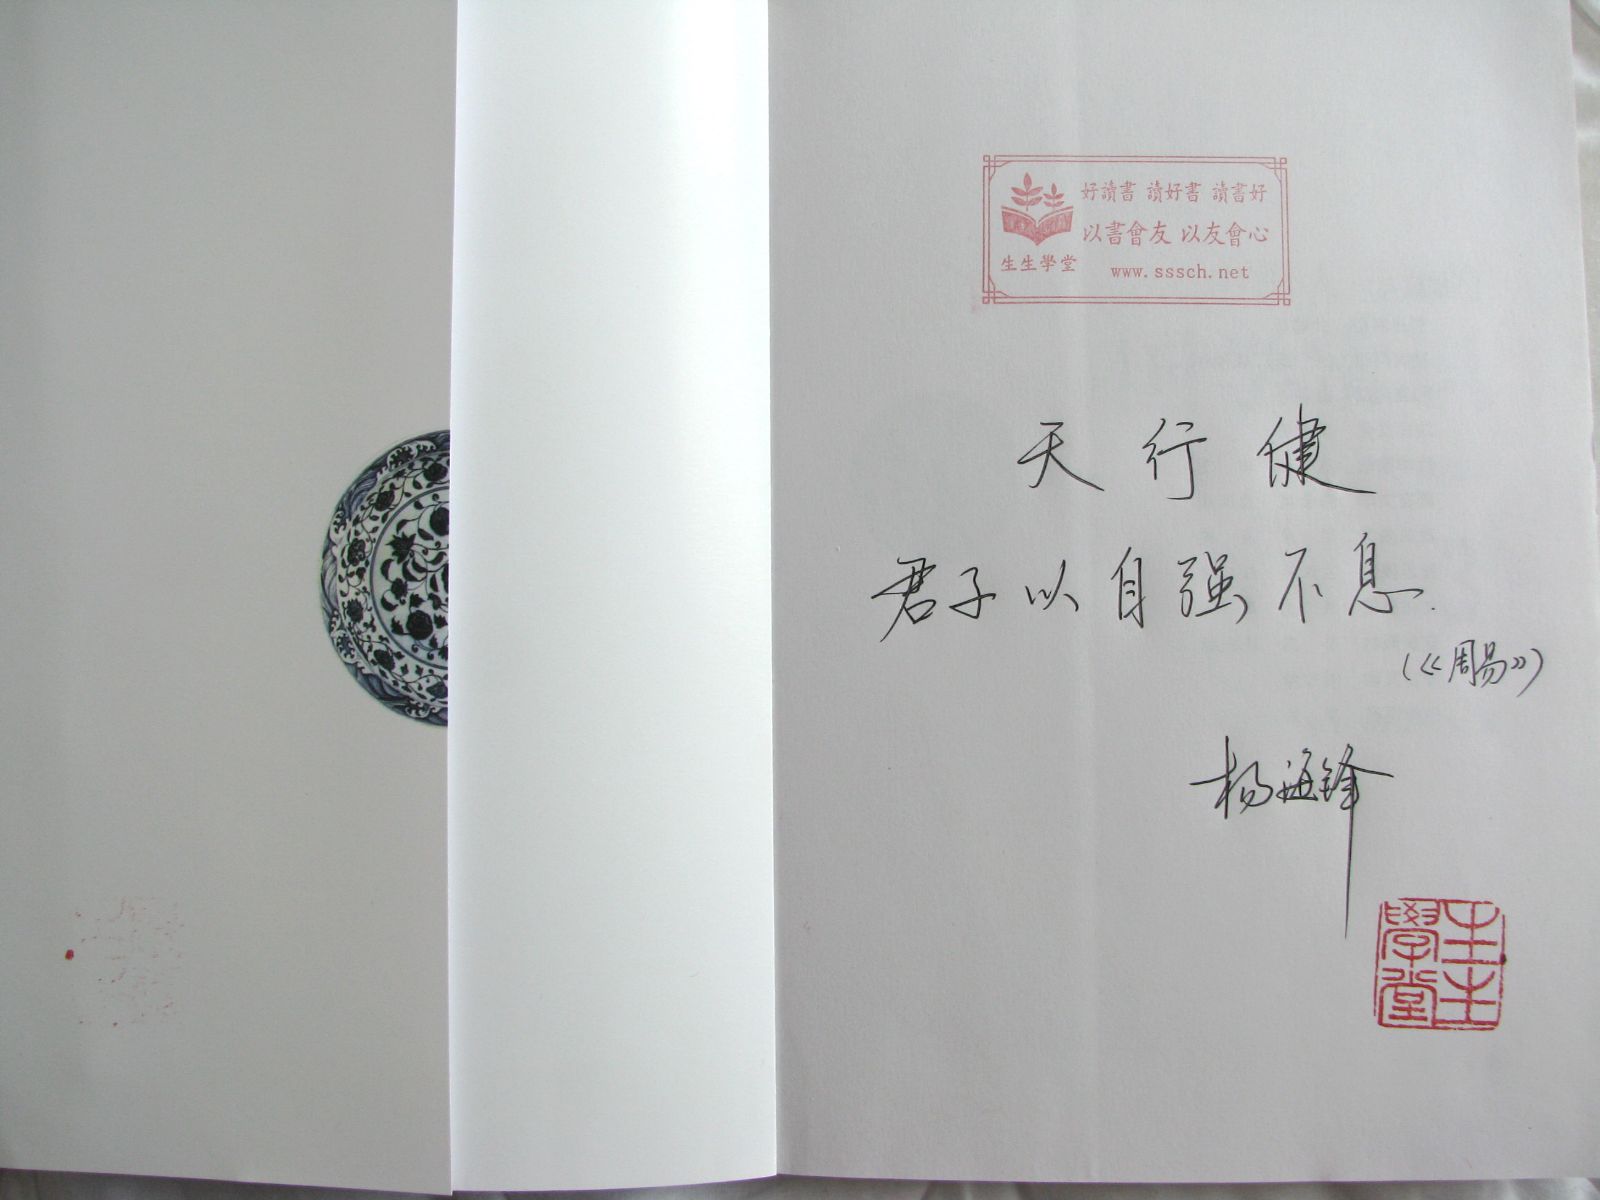 好讀書 讀好書 讀書好
以書會友 以友會心
生生學堂 www.sssch.net
天行健
君子以自强不息.
(《周易》)
杨海锋
生生
學堂